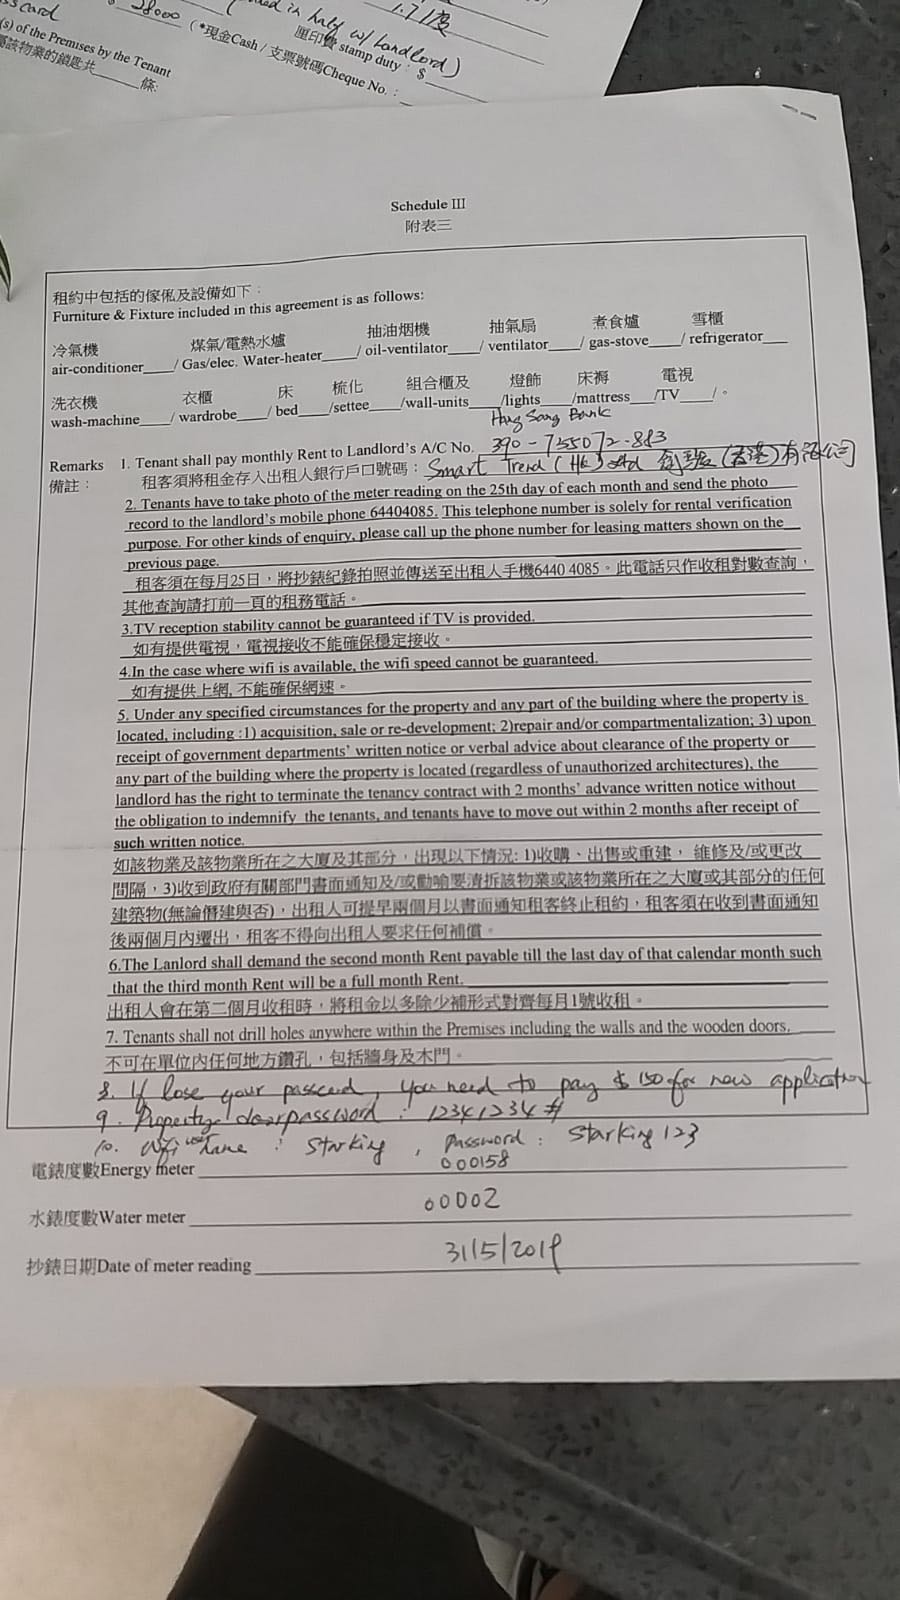 ss card
$ 28000
in half w/ Landlord)
1.7/度
厘印費 stamp duty : $
(s) of the Premises by the Tenant
(*現金Cash / 支票號碼Cheque No. :
該物業的鎖匙共______條:
Schedule III
附表三
租約中包括的傢俬及設備如下:
Furniture & Fixture included in this agreement is as follows:
冷氣機 煤氣/電熱水爐 抽油烟機 抽氣扇 煮食爐 雪櫃
air-conditioner____/ Gas/elec. Water-heater____/ oil-ventilator____/ ventilator____/ gas-stove____/ refrigerator___
洗衣機 衣櫃 床 梳化 組合櫃及 燈飾 床褥 電視
wash-machine____/ wardrobe____/ bed____/settee____/wall-units____/lights____/mattress___/TV____/。
Hang Sang Bank
Remarks 1. Tenant shall pay monthly Rent to Landlord's A/C No. 390-755072-883
備註: 租客須將租金存入出租人銀行戶口號碼: Smart Trend (HK) Ltd (香港)有限公司
2. Tenants have to take photo of the meter reading on the 25th day of each month and send the photo
record to the landlord's mobile phone 64404085. This telephone number is solely for rental verification
purpose. For other kinds of enquiry, please call up the phone number for leasing matters shown on the
previous page.
租客須在每月25日,將抄錶紀錄拍照並傳送至出租人手機6440 4085。此電話只作收租對數查詢,
其他查詢請打前一頁的租務電話。
3.TV reception stability cannot be guaranteed if TV is provided.
如有提供電視,電視接收不能確保穩定接收。
4.In the case where wifi is available, the wifi speed cannot be guaranteed.
如有提供上網, 不能確保網速。
5. Under any specified circumstances for the property and any part of the building where the property is
located, including :1) acquisition, sale or re-development; 2)repair and/or compartmentalization; 3) upon
receipt of government departments' written notice or verbal advice about clearance of the property or
any part of the building where the property is located (regardless of unauthorized architectures), the
landlord has the right to terminate the tenancy contract with 2 months' advance written notice without
the obligation to indemnify the tenants, and tenants have to move out within 2 months after receipt of
such written notice.
如該物業及該物業所在之大廈及其部分,出現以下情況: 1)收購、出售或重建, 維修及/或更改
間隔,3)收到政府有關部門書面通知及/或勸喻要清拆該物業或該物業所在之大廈或其部分的任何
建築物(無論僭建與否),出租人可提早兩個月以書面通知租客終止租約,租客須在收到書面通知
後兩個月內遷出,租客不得向出租人要求任何補償。
6.The Lanlord shall demand the second month Rent payable till the last day of that calendar month such
that the third month Rent will be a full month Rent.
出租人會在第二個月收租時,將租金以多除少補形式對齊每月1號收租。
7. Tenants shall not drill holes anywhere within the Premises including the walls and the wooden doors.
不可在單位內任何地方鑽孔,包括牆身及木門。
8. If lose your passcard, you need to pay $ 150 for new application
9. Property door password : 12341234#
10. Wifi name : Starking , Password : Starking123
電錶度數Energy meter 000158
水錶度數Water meter 00002
抄錶日期Date of meter reading 31/5/2019